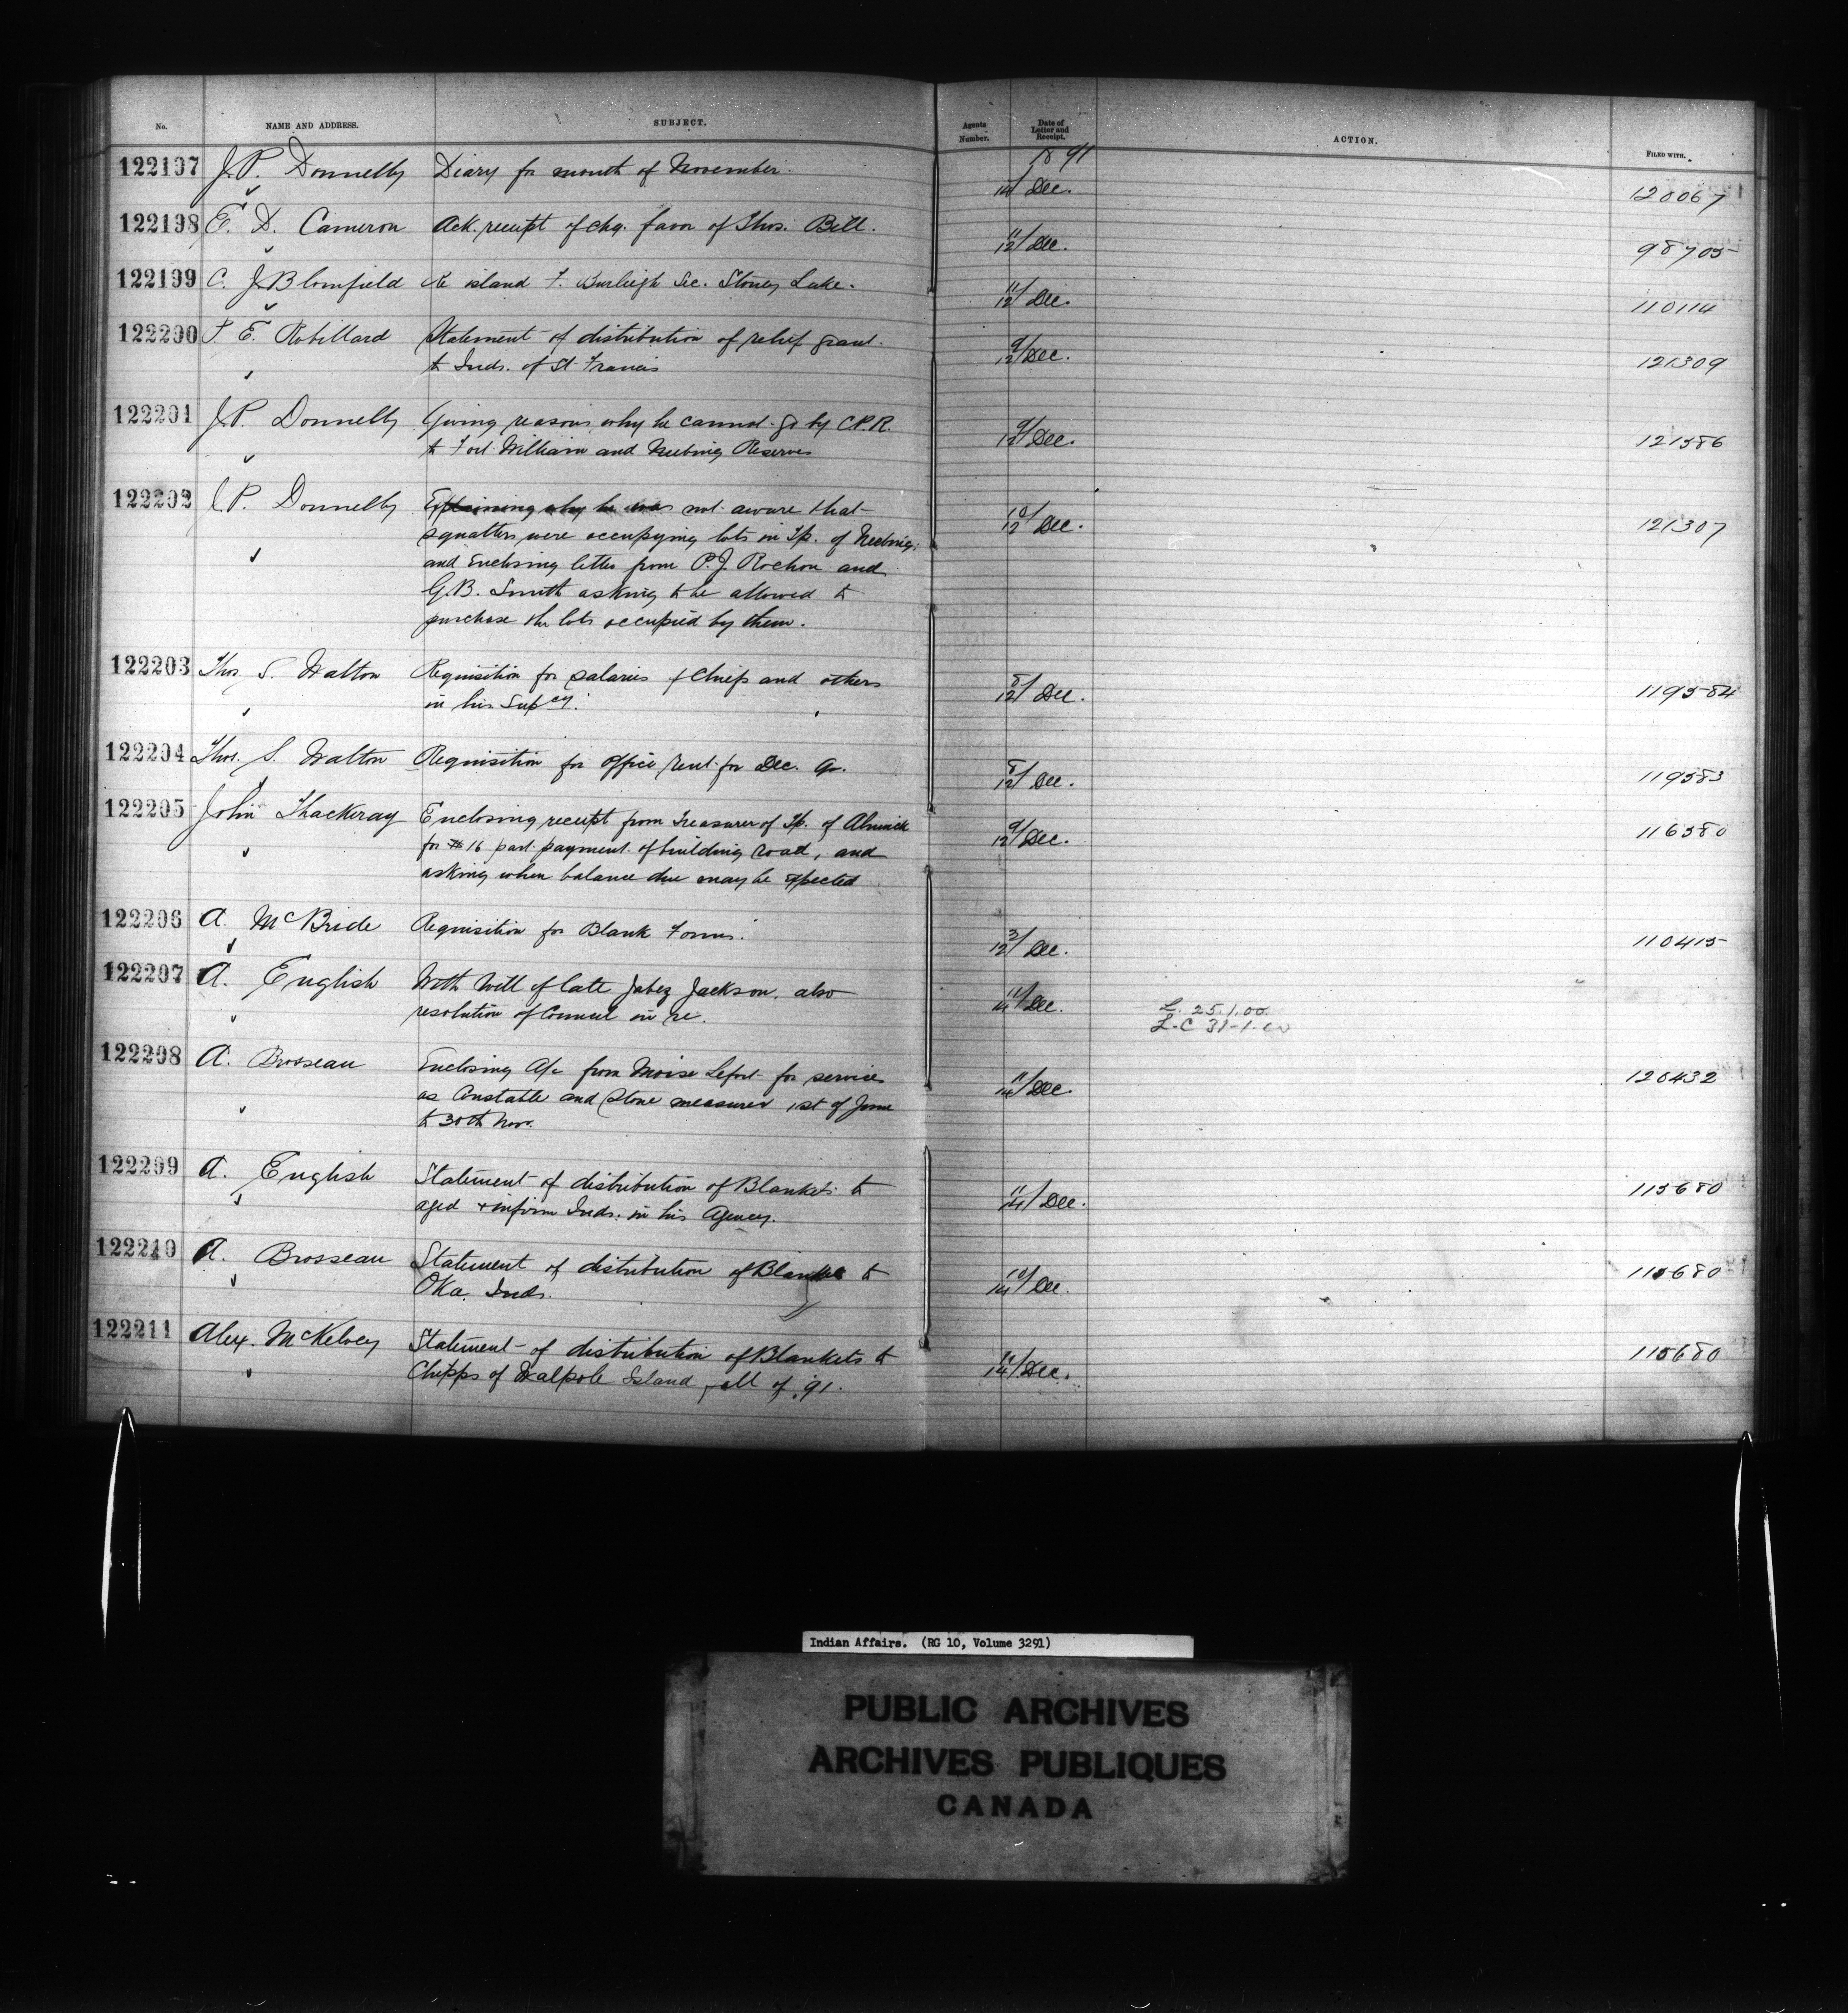 No. NAME AND ADDRESS. SUBJECT. Agents Number. Date of Letter and Receipt. ACTION. FILED WITH.
1891
122197 J.P. Donnelly Diary for month of November. 14/ Dec. 120067
122198 E. D. Cameron Ack. receipt of chq. favor of Thos. Bill. 11/12/ Dec. 98705
122199 C. J. Blomfield Re island F. Burleigh Sec. Stoney Lake. 11/12/ Dec. 110114
122200 P. E. Robillard Statement of distribution of relief grant 9/12/ Dec. 121309
to Inds. of St. Francis
122201 J.P. Donnelly Giving reasons why he cannot go by C.P.R. 9/12/ Dec. 121586
to Fort William and Neebing Reserves
122202 J.P. Donnelly Explaining why he was not aware that 10/12/ Dec. 121307
squatters were occupying lots in Tp. of Neebing
and enclosing letter from P.J. Rochon and
G.B. Smith asking to be allowed to
purchase the lots occupied by them.
122203 Thos. S. Walton Requisition for salaries of Chiefs and others 8/12/ Dec. 119584
in his Supcy.
122204 Thos. S. Walton Requisition for office rent for Dec. Qr. 8/12/ Dec. 119583
122205 John Thackeray Enclosing receipt from Treasurer of Tp. of Alnwick 9/12/ Dec. 116580
for $16 part payment of building road, and
asking when balance due may be expected
122206 A. McBride Requisition for Blank Forms. 3/12/ Dec. 110415
122207 A. English With Will of late Jabez Jackson, also 11/14/ Dec. L. 25.1.00.
resolution of Council in re. L.C 31-1-00
122208 A. Brosseau Enclosing A/c from Moise Lefort for services 11/14/ Dec. 120432
as Constable and Stone measurer 1st of June
to 30th Nov.
122209 A. English Statement of distribution of Blankets to 11/14/ Dec. 115680
aged & infirm Inds. in his Agency.
122210 A. Brosseau Statement of distribution of Blankets to 10/14/ Dec. 115680
Oka Inds.
122211 Alex. McKelvey Statement of distribution of Blankets to 14/ Dec. 115680
Chipps of Walpole Island, all of '91.
Indian Affairs. (RG 10, Volume 3291)
PUBLIC ARCHIVES
ARCHIVES PUBLIQUES
CANADA